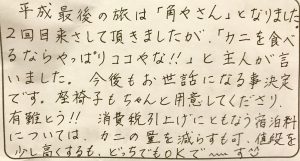 平成最後の旅は「角やさん」となりました
2回目来さして頂きましたが、「カニを食べ
るならやっぱりココやな!!」と主人が言
いました。今後もお世話になる事決定
です。座椅子もちゃんと用意してくださり、
有難とう!! 消費税引上げにともなう宿泊料
については、カニの量を減らすも可、値段を
少し高くするも、どっちでもOKで〜す